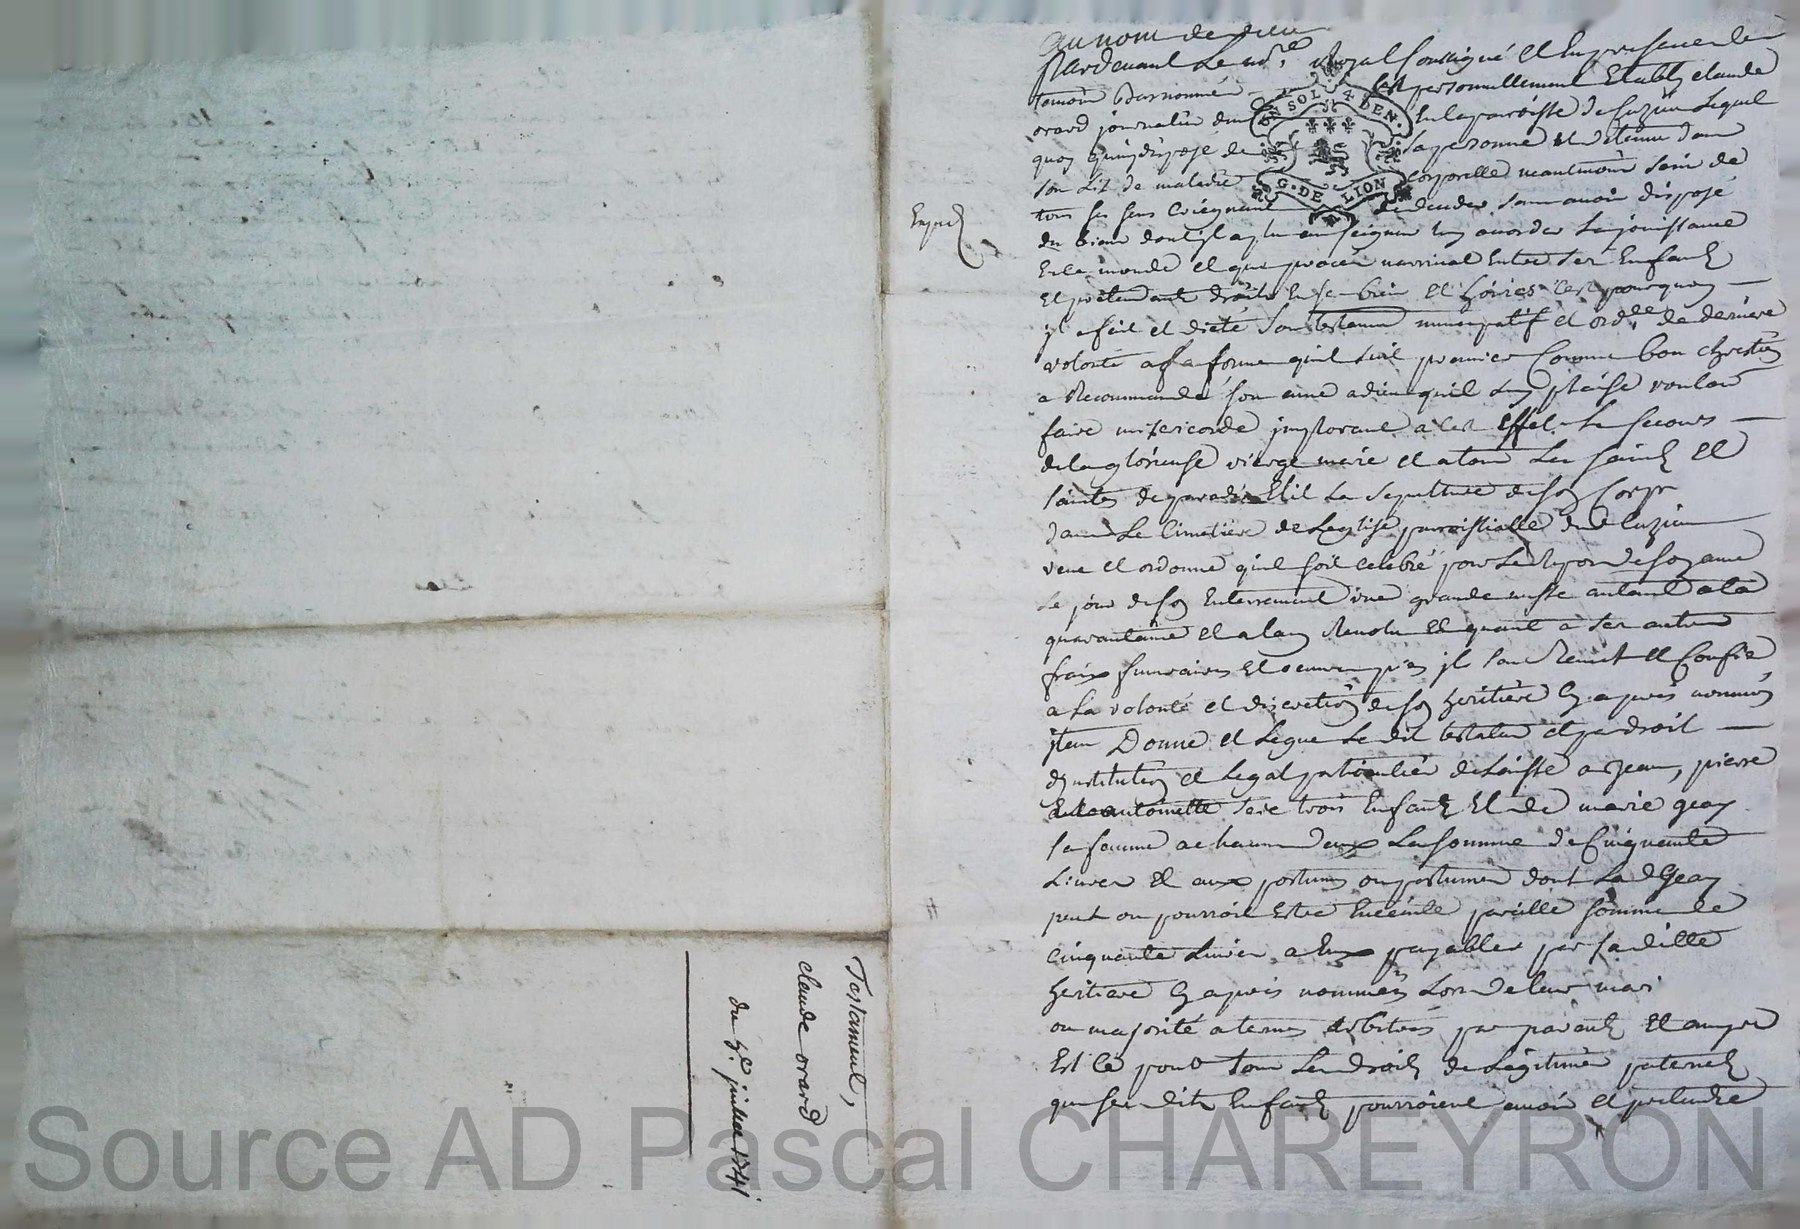 Testament,
claude orard
du 4e juillet 1741
Exped
au nom de dieu
Pardevant Le nre Royal soussigné et En presence des
temoins bas nommés est personnellement Etably claude
orard journalier En la paroisse de Luzieu Lequel
quoy qu'indisposé de sa personne et detenu dans
son Lit de maladie corporelle neantmoins sain de
tous ses sens craignant de deceder sans avoir disposé
du biens dont il a plu au seigneur luy accorder la jouissance
En ce monde et que proces narrivat Entre ses Enfants
et pretendants droits En ses biens et hoiries c'est pourquoy
jl a fait et dicté son testament nuncupatif et ordce de derniere
volonté a la forme quil suit premier Comme bon chrestien
a Recommandé son ame a dieu quil luy plaise vouloir
faire misericorde jmplorant a cet Effet le secours
de la glorieuse vierge marie et a tous Les saints Et
saintes de paradis Elit La sepulture de son Corps
dans Le Cimetiere de Leglise parroissialle du Luzieu
veut et ordonne quil soit celebré pour Le Repos de son ame
Le jour de son Enterrement une grande messe autant a la
quarantaine et a lan Revolu Et quant a ses autres
fraix funeraires et oeuvres pies jl sen Remet et Confie
a la volonté et discretion de son heritiere cy apres nommée
jtem Donne et Legue Le dit testateur et par droit
d'jnstitution et Legat particulier delaisse a Jean, pierre
et antoinette ses trois Enfants Et de marie geay
sa femme a chacun deux La somme de Cinquante
Livres Et aux postume ou postumes dont La d Geay
peut ou pourroit Estre Enceinte pareille somme de
cinquante Livres a Eux payables par sa ditte
heritiere cy apres nommée Lors de leur mari
ou majorité a termes arbitrés par parents Et amys
Et Ce pour tous Les droits de Legitime paternels
que ses dits Enfants pourroient avoir et pretendre
G. DE LION
SOL 4 DEN.
Source AD Pascal CHAREYRON